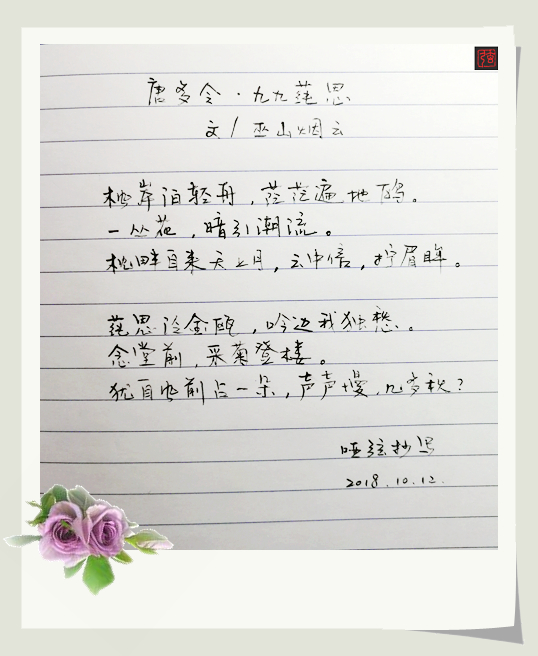 唐多令·九九莲思
文/巫山烟云
岸泊轻舟，茫茫遍地鸥。
一丛花，暗引潮流。
枕畔自来天上月，云中信，拧眉眸。
莲思泠金瓯，吟边我独愁。
念堂前，采菊登楼。
犹自也前占一朵，声声慢，几多秋？
哑弦抄思
2018.10.12.